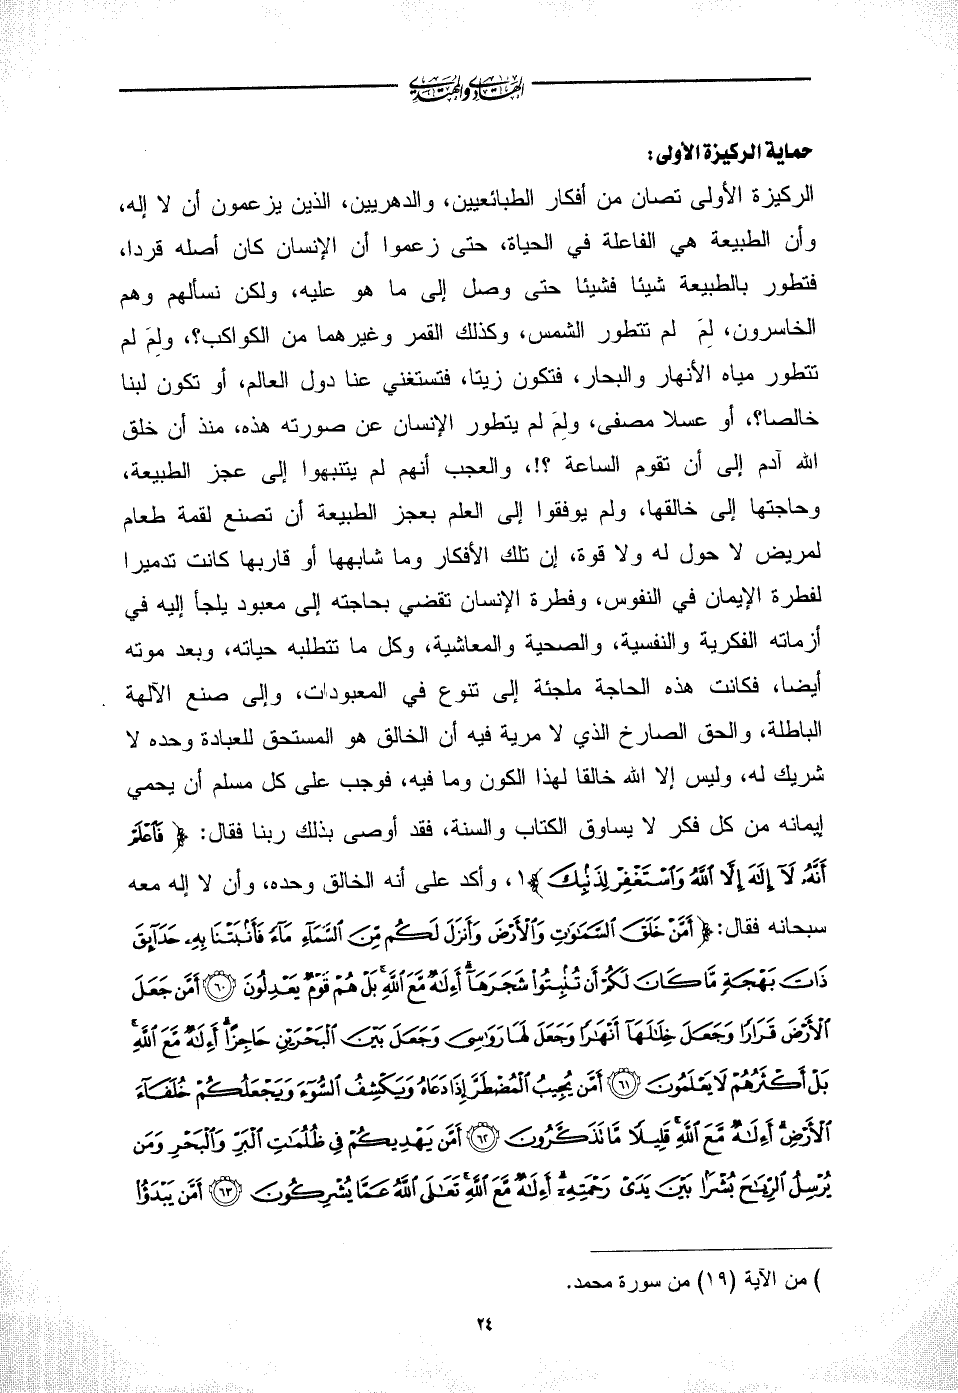 الهادي والمهتدي
حماية الركيزة الأولى:
الركيزة الأولى تصان من أفكار الطبائعيين، والدهريين، الذين يزعمون أن لا إله،
وأن الطبيعة هي الفاعلة في الحياة، حتى زعموا أن الإنسان كان أصله قردا،
فتطور بالطبيعة شيئا فشيئا حتى وصل إلى ما هو عليه، ولكن نسألهم وهم
الخاسرون، لِمَ لم تتطور الشمس، وكذلك القمر وغيرهما من الكواكب؟، ولِمَ لم
تتطور مياه الأنهار والبحار، فتكون زيتا، فتستغني عنا دول العالم، أو تكون لبنا
خالصا؟، أو عسلا مصفى، ولِمَ لم يتطور الإنسان عن صورته هذه، منذ أن خلق
الله آدم إلى أن تقوم الساعة ؟!، والعجب أنهم لم يتنبهوا إلى عجز الطبيعة،
وحاجتها إلى خالقها، ولم يوفقوا إلى العلم بعجز الطبيعة أن تصنع لقمة طعام
لمريض لا حول له ولا قوة، إن تلك الأفكار وما شابهها أو قاربها كانت تدميرا
لفطرة الإيمان في النفوس، وفطرة الإنسان تقضي بحاجته إلى معبود يلجأ إليه في
أزماته الفكرية والنفسية، والصحية والمعاشية، وكل ما تتطلبه حياته، وبعد موته
أيضا، فكانت هذه الحاجة ملجئة إلى تنوع في المعبودات، وإلى صنع الآلهة
الباطلة، والحق الصارخ الذي لا مرية فيه أن الخالق هو المستحق للعبادة وحده لا
شريك له، وليس إلا الله خالقا لهذا الكون وما فيه، فوجب على كل مسلم أن يحمي
إيمانه من كل فكر لا يساوق الكتاب والسنة، فقد أوصى بذلك ربنا فقال: ﴿ فَٱعْلَمْ
أَنَّهُۥ لَآ إِلَٰهَ إِلَّا ٱللَّهُ وَٱسْتَغْفِرْ لِذَنۢبِكَ ﴾١، وأكد على أنه الخالق وحده، وأن لا إله معه
سبحانه فقال: ﴿ أَمَّنْ خَلَقَ ٱلسَّمَٰوَٰتِ وَٱلْأَرْضَ وَأَنزَلَ لَكُم مِّنَ ٱلسَّمَآءِ مَآءً فَأَنۢبَتْنَا بِهِۦ حَدَآئِقَ
ذَاتَ بَهْجَةٍ مَّا كَانَ لَكُمْ أَن تُنۢبِتُوا۟ شَجَرَهَآ ۗ أَءِلَٰهٌ مَّعَ ٱللَّهِ ۚ بَلْ هُمْ قَوْمٌ يَعْدِلُونَ ٦٠ أَمَّن جَعَلَ
ٱلْأَرْضَ قَرَارًا وَجَعَلَ خِلَٰلَهَآ أَنْهَٰرًا وَجَعَلَ لَهَا رَوَٰسِىَ وَجَعَلَ بَيْنَ ٱلْبَحْرَيْنِ حَاجِزًا ۗ أَءِلَٰهٌ مَّعَ ٱللَّهِ ۚ
بَلْ أَكْثَرُهُمْ لَا يَعْلَمُونَ ٦١ أَمَّن يُجِيبُ ٱلْمُضْطَرَّ إِذَا دَعَاهُ وَيَكْشِفُ ٱلسُّوٓءَ وَيَجْعَلُكُمْ خُلَفَآءَ
ٱلْأَرْضِ ۗ أَءِلَٰهٌ مَّعَ ٱللَّهِ ۚ قَلِيلًا مَّا تَذَكَّرُونَ ٦٢ أَمَّن يَهْدِيكُمْ فِى ظُلُمَٰتِ ٱلْبَرِّ وَٱلْبَحْرِ وَمَن
يُرْسِلُ ٱلرِّيَٰحَ بُشْرًۢا بَيْنَ يَدَىْ رَحْمَتِهِۦٓ ۗ أَءِلَٰهٌ مَّعَ ٱللَّهِ ۚ تَعَٰلَى ٱللَّهُ عَمَّا يُشْرِكُونَ ٦٣ أَمَّن يَبْدَؤُا۟
) من الآية (١٩) من سورة محمد.
٢٤